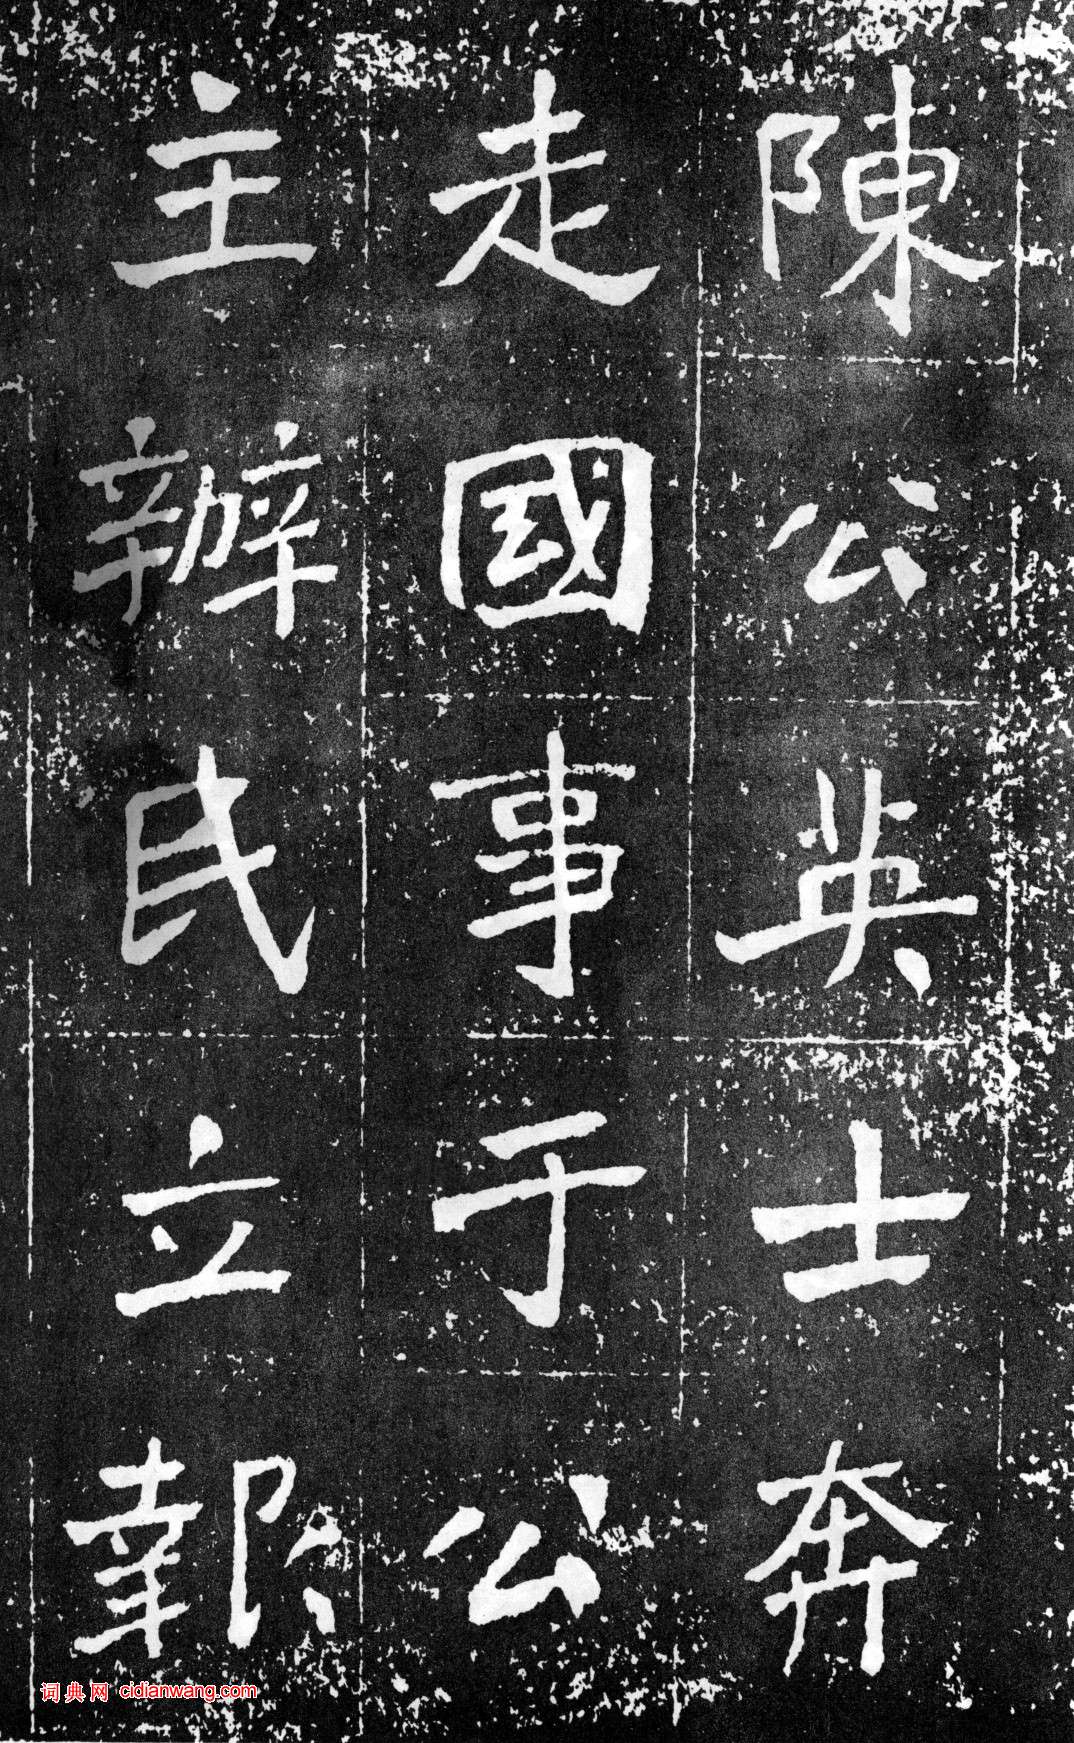 陳公英士奔
走國事于公
主辦民立報
词典网 cidianwang.com